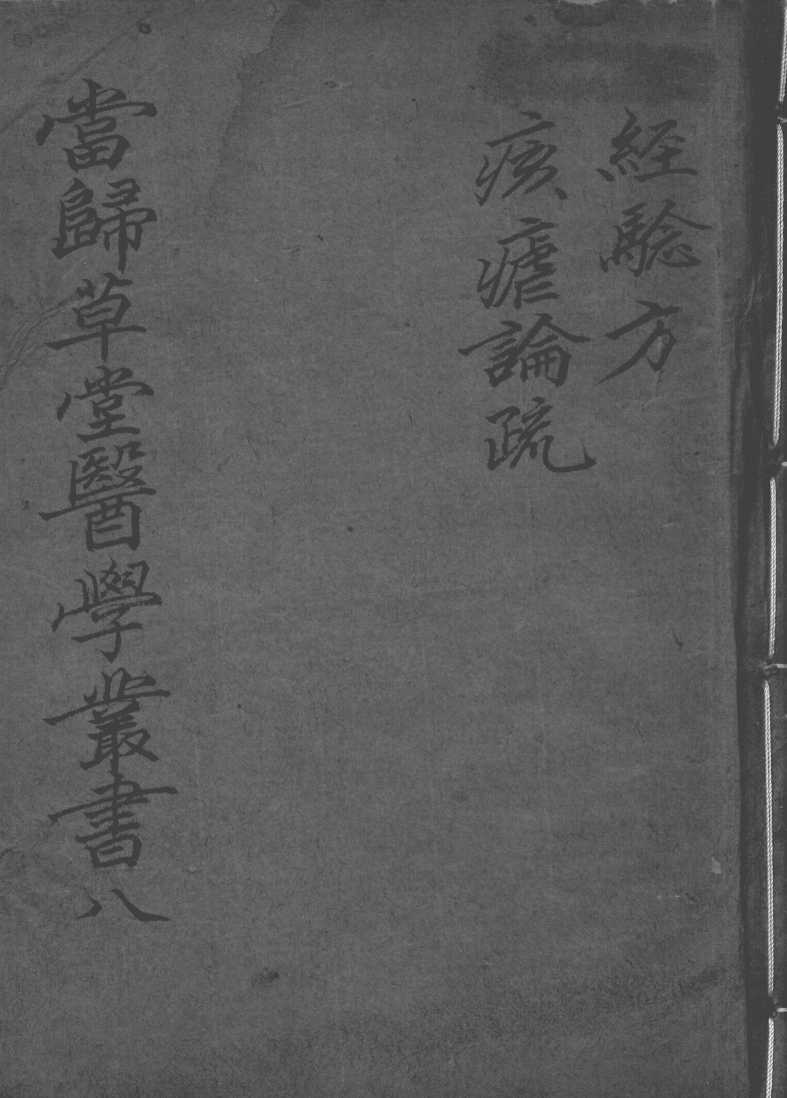 経験方
痎瘧論疏
當歸草堂醫學叢書八